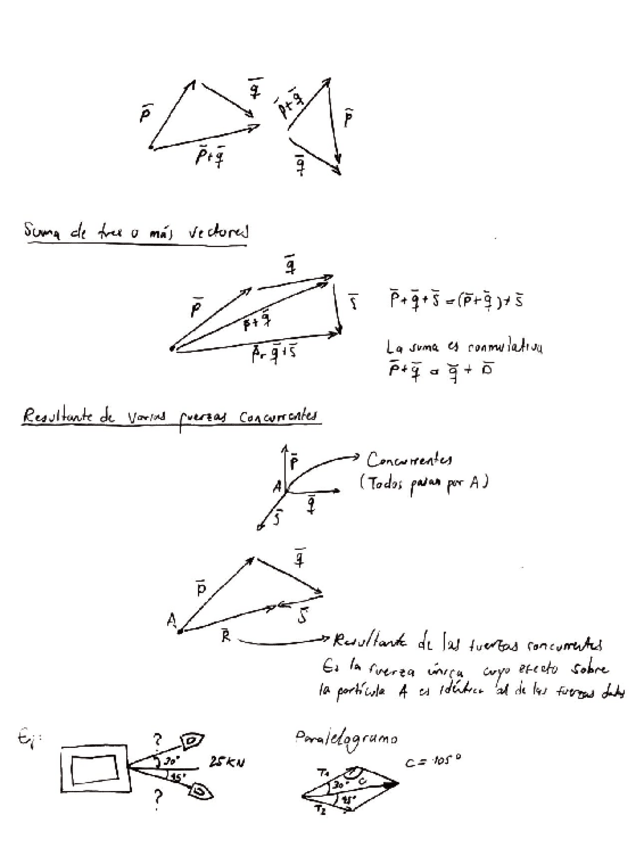 p̄
q̄
p̄+q̄
p̄+q̄
p̄
q̄
Suma de tres o más vectores
p̄
q̄
p̄+q̄
s̄
p̄+q̄+s̄
p̄+q̄+s̄=(p̄+q̄)+s̄
La suma es conmutativa
p̄+q̄ = q̄ + p̄
Resultante de varias fuerzas concurrentes
p̄
A
q̄
s̄
Concurrentes
(Todos pasan por A)
p̄
q̄
A
R̄
s̄
Resultante de las fuerzas concurrentes
Es la fuerza única cuyo efecto sobre
la partícula A es idéntica al de las fuerzas dadas
Ej:
?
30°
45°
25 KN
?
Paralelogramo
T1
30°
C
45°
T2
C = 105°